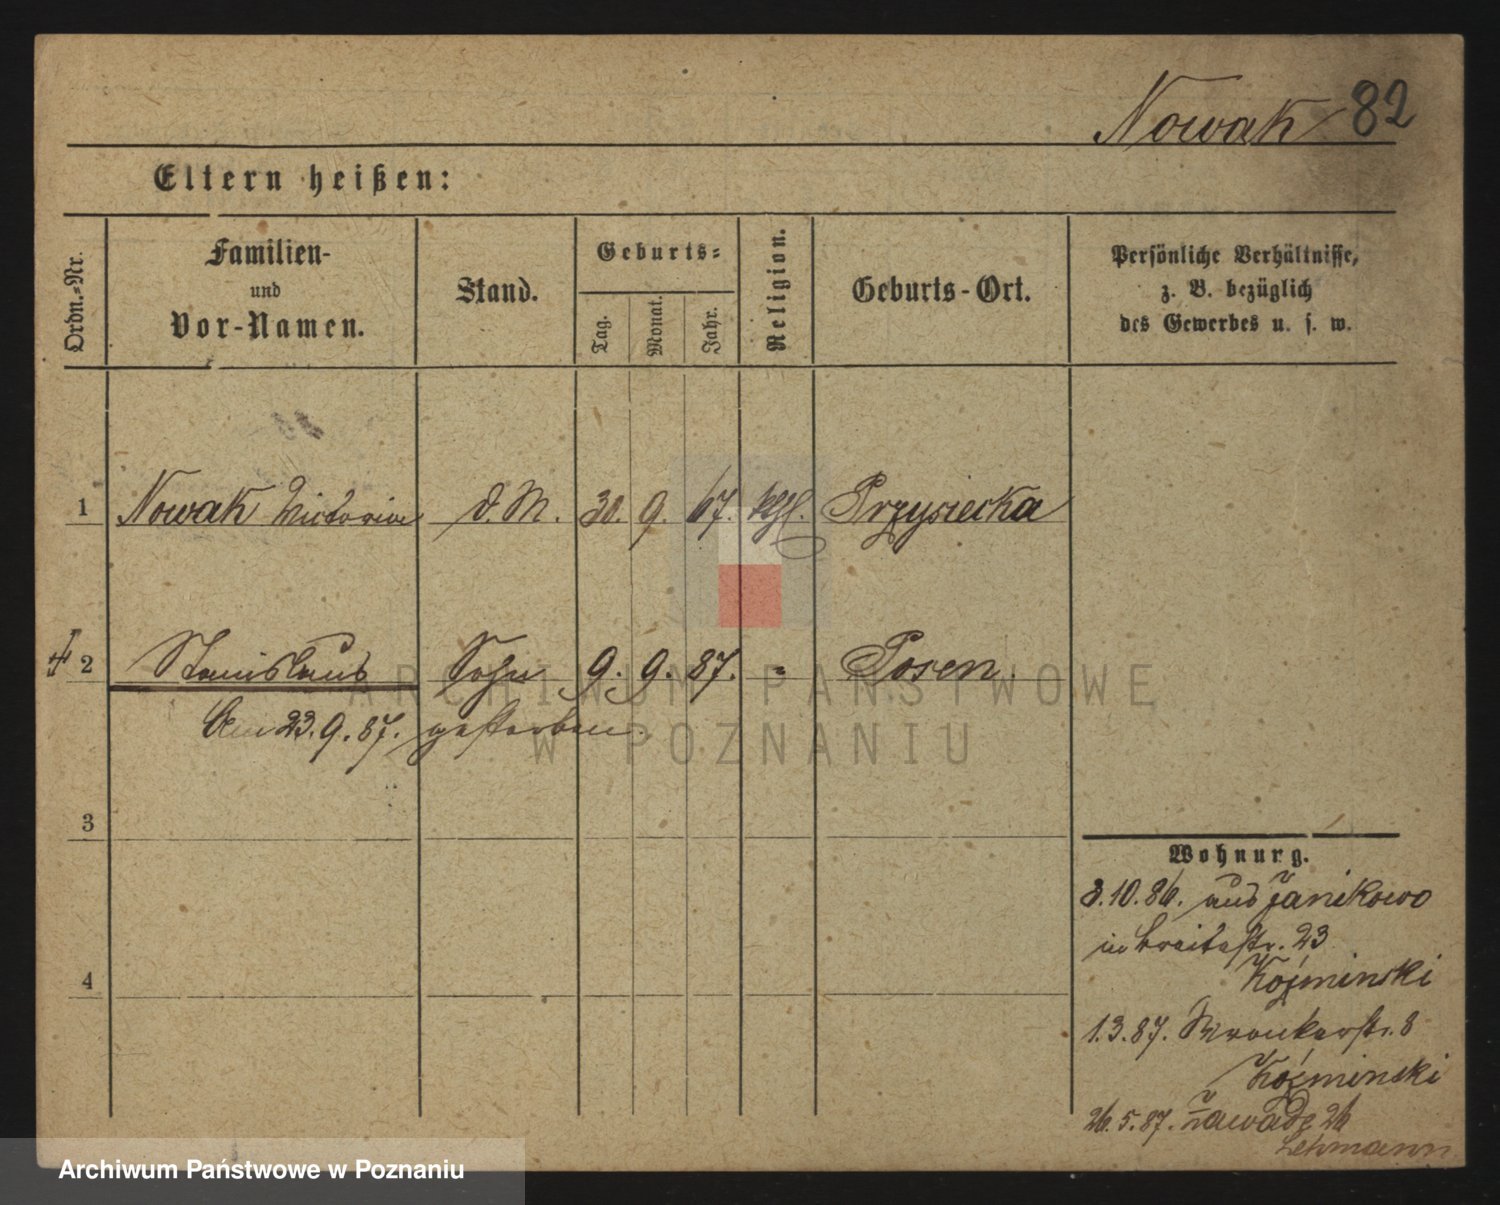 Nowak 82
Eltern heißen:
Ordn.-Nr.
Familien-
und
Vor-Namen.
Stand.
Geburts-
Tag.
Monat.
Jahr.
Religion.
Geburts-Ort.
Persönliche Verhältnisse,
z. B. bezüglich
des Gewerbes u. s. w.
1 Nowak Victoria d. M. 30. 9. 67. kthl. Przysiecka
2 Stanislaus Sohn 9. 9. 87. " Posen.
Am 23. 9. 87. gestorben.
3
4
Wohnung.
3.10.86. aus Janikowo
in Breitestr. 23
Koźminski
1.3.87. Wronkerstr. 8
Koźminski
26.5.87. Zawade 26
Lehmann
ARCHIWUM PAŃSTWOWE
W POZNANIU
Archiwum Państwowe w Poznaniu